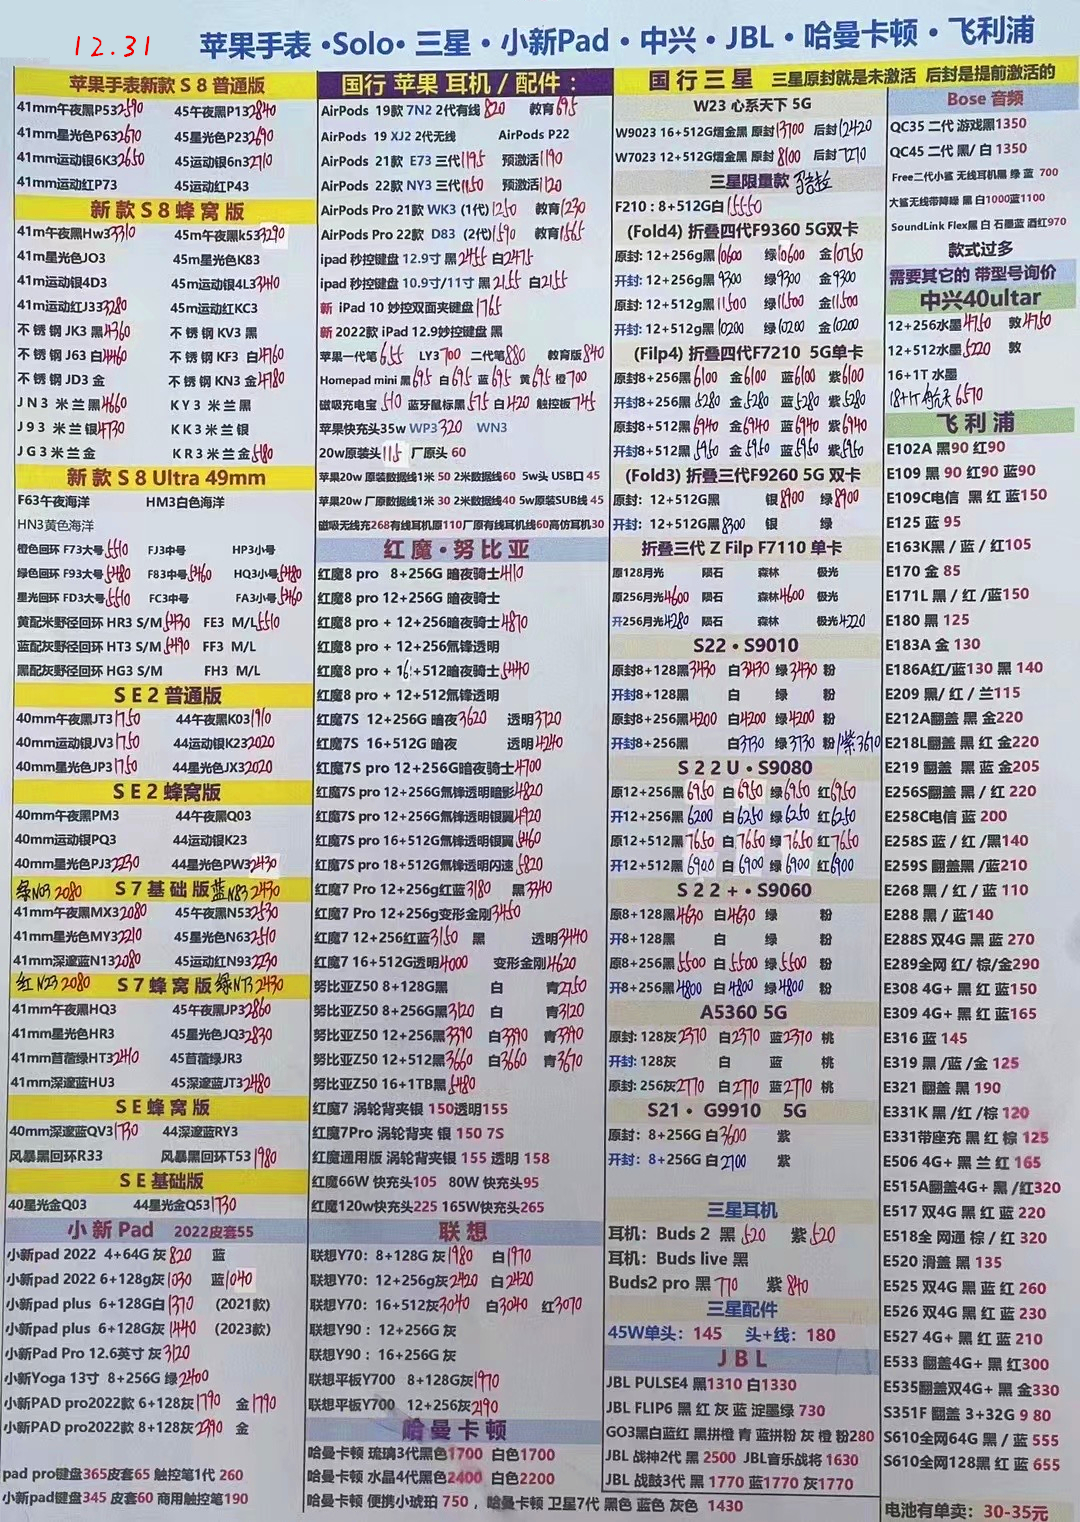 12.31
苹果手表·Solo·三星·小新Pad·中兴·JBL·哈曼卡顿·飞利浦
苹果手表新款 S 8 普通版
41mm午夜黑P53 2590 45午夜黑P13 2840
41mm星光色P63 2670 45星光色P23 2690
41mm运动银6K3 2650 45运动银6n3 2710
41mm运动红P73 45运动红P43
新 款 S 8 蜂 窝 版
41m午夜黑Hw3 3310 45m午夜黑k53 3290
41m星光色JO3 45m星光色K83
41m运动银4D3 45m运动银4L3 3440
41m运动红J33 3280 45m运动红KC3
不 锈 钢 JK3 黑 4360 不 锈 钢 KV3 黑
不 锈 钢 J63 白 4460 不 锈 钢 KF3 白 4760
不 锈 钢 JD3 金 不 锈 钢 KN3 金 4780
JN3 米兰黑 4660 KY3 米兰黑
J93 米兰银 4730 KK3 米兰银
JG3 米兰金 KR3 米兰金 5180
新 款 S 8 Ultra 49mm
F63午夜海洋 HM3白色海洋
HN3黄色海洋
橙色回环 F73大号 5510 FJ3中号 HP3小号
绿色回环 F93大号 5480 F83中号 5460 HQ3小号 5480
星光回环 FD3大号 5510 FC3中号 FA3小号 5460
黄配米野径回环 HR3 S/M 5430 FE3 M/L 5510
蓝配灰野径回环 HT3 S/M 5490 FF3 M/L
黑配灰野径回环 HG3 S/M FH3 M/L
S E 2 普通版
40mm午夜黑JT3 1750 44午夜黑K03 1910
40mm运动银JV3 1750 44运动银K23 2020
40mm星光色JP3 1750 44星光色JX3 2020
S E 2 蜂窝版
40mm午夜黑PM3 44午夜黑Q03
40mm运动银PQ3 44运动银K23
40mm星光色PJ3 2230 44星光色PW3 2430
绿N03 2080 S 7 基 础 版 蓝N83 2430
41mm午夜黑MX3 2080 45午夜黑N53 2530
41mm星光色MY3 2210 45星光色N63 2510
41mm深邃蓝N13 2080 45运动红N93 2230
红N23 2080 S 7 蜂 窝 版 绿N73 2430
41mm午夜黑HQ3 45午夜黑JP3 2860
41mm星光色HR3 45星光色JQ3 2830
41mm苜蓿绿HT3 2410 45苜蓿绿JR3
41mm深邃蓝HU3 45深邃蓝JT3 2480
S E 蜂 窝 版
40mm深邃蓝QV3 1730 44深邃蓝RY3
风暴黑回环R33 风暴黑回环T53 1980
S E 基础版
40星光金Q03 44星光金Q53 1730
小 新 Pad 2022皮套55
小新pad 2022 4+64G 灰 820 蓝
小新pad 2022 6+128g灰 1030 蓝 1040
小新pad plus 6+128G白 1370 (2021款)
小新pad plus 6+128G灰 1440 (2023款)
小新Pad Pro 12.6英寸 灰 3120
小新Yoga 13寸 8+256G 绿 2400
小新PAD pro2022款 6+128灰 1790 金 1790
小新PAD pro2022款 8+128灰 2390 金
pad pro键盘365皮套65 触控笔1代 260
小新pad键盘345 皮套60 商用触控笔190
国行 苹果 耳机 / 配件：
AirPods 19款 7N2 2代有线 820 教育 695
AirPods 19 XJ2 2代无线 AirPods P22
AirPods 21款 E73 三代 1195 预激活 1190
AirPods 22款 NY3 三代 1150 预激活 1120
AirPods Pro 21款 WK3 (1代) 1250 教育 1230
AirPods Pro 22款 D83 (2代) 1590 教育 1565
ipad 秒控键盘 12.9寸 黑 2455 白 2475
ipad 秒控键盘 10.9寸/11寸 黑 2155 白 2155
新 iPad 10 妙控双面夹键盘 1765
新 2022款 iPad 12.9妙控键盘 黑
苹果一代笔 655 LY3 700 二代笔 880 教育版 840
Homepad mini 黑 695 白 695 蓝 695 黄 695 橙 700
磁吸充电宝 510 蓝牙鼠标黑 575 白 420 触控板 745
苹果快充头35w WP3 320 WN3
20w原装头 115 厂原头 60
苹果20w 原装数据线1米 50 2米数据线60 5w头 USB口 45
苹果20w 厂原数据线1米 30 2米数据线40 5w原装SUB线 45
磁吸无线充268有线耳机原110厂原有线耳机线60高仿耳机30
红 魔 · 努 比 亚
红魔8 pro 8+256G 暗夜骑士 4410
红魔8 pro 12+256G 暗夜骑士
红魔8 pro + 12+256暗夜骑士 4870
红魔8 pro + 12+256氘锋透明
红魔8 pro + 16+512暗夜骑士 5440
红魔8 pro + 12+512氘锋透明
红魔7S 12+256G 暗夜 3620 透明 3720
红魔7S 16+512G 暗夜 透明 4240
红魔7S pro 12+256G暗夜骑士 4700
红魔7S pro 12+256G氘锋透明暗影 4820
红魔7S pro 12+256G氘锋透明银翼 4920
红魔7S pro 16+512G氘锋透明银翼 5460
红魔7S pro 18+512G氘锋透明闪速 5820
红魔7 Pro 12+256g红蓝 3180 黑 3340
红魔7 Pro 12+256g变形金刚 3450
红魔7 12+256红蓝 3150 黑 透明 3440
红魔7 16+512G透明 4000 变形金刚 4620
努比亚Z50 8+128G黑 白 青 2750
努比亚Z50 8+256G黑 3120 白 青 3120
努比亚Z50 12+256黑 3390 白 3390 青 3390
努比亚Z50 12+512黑 3660 白 3660 青 3670
努比亚Z50 16+1TB黑 5480
红魔7 涡轮背夹银 150透明155
红魔7Pro 涡轮背夹 银 150 7S
红魔通用版 涡轮背夹银 155 透明 158
红魔66W 快充头105 80W 快充头95
红魔120w快充头225 165W快充头265
联 想
联想Y70: 8+128G 灰 1980 白 1970
联想Y70: 12+256g灰 2420 白 2420
联想Y70: 16+512灰 3040 白 3040 红 3070
联想Y90 : 12+256G 灰
联想Y90 : 16+256G 灰
联想平板Y700 8+128G灰 1970
联想平板Y700 12+256灰 2190
哈 曼 卡 顿
哈曼卡顿 琉璃3代黑色1700 白色1700
哈曼卡顿 水晶4代黑色2400 白色2200
哈曼卡顿 便携小琥珀 750 , 哈曼卡顿 卫星7代 黑色 蓝色 灰色 1430
国 行 三 星 三星原封就是未激活 后封是提前激活的
W23 心系天下 5G
W9023 16+512G熠金黑 原封 13700 后封 12420
W7023 12+512G熠金黑 原封 8100 后封 7270
三星限量款
F210 : 8+512G白 15550
(Fold4) 折叠四代F9360 5G双卡
原封: 12+256g黑 10600 绿 10600 金 10750
开封: 12+256g黑 9300 绿 9300 金 9300
原封: 12+512g黑 11500 绿 11500 金 11500
开封: 12+512g黑 10200 绿 10200 金 10200
(Filp4) 折叠四代F7210 5G单卡
原封8+256黑 6100 金 6100 蓝 6100 紫 6100
开封8+256黑 5280 金 5280 蓝 5280 紫 5280
原封8+512黑 6940 金 6940 蓝 6940 紫 6940
开封8+512黑 5950 金 5950 蓝 5950 紫 5950
(Fold3) 折叠三代F9260 5G 双卡
原封: 12+512G黑 银 8900 绿 8900
开封: 12+512G黑 8300 银 绿
折叠三代 Z Filp F7110 单卡
原128月光 陨石 森林 极光
原256月光 4600 陨石 森林 4600 极光
开256月光 4280 陨石 森林 极光 4220
S22 · S9010
原封8+128黑 3430 白 3430 绿 3430 粉
开封8+128黑 白 绿 粉
原封8+256黑 4200 白 4200 绿 4200 粉
开封8+256黑 白 3730 绿 3730 粉 /紫 3610
S 2 2 U · S9080
原12+256黑 6950 白 6950 绿 6950 红 6950
开12+256黑 6200 白 6250 绿 6250 红 6250
原12+512黑 7650 白 7650 绿 7650 红 7650
开12+512黑 6900 白 6900 绿 6900 红 6900
S 2 2 + · S9060
原8+128黑 4630 白 4630 绿 粉
开8+128黑 白 绿 粉
原8+256黑 5500 白 5500 绿 5500 粉
开8+256黑 4800 白 4800 绿 4800 粉
A5360 5G
原封: 128灰 2370 白 2370 蓝 2370 桃
开封: 128灰 白 蓝 桃
原封: 256灰 2770 白 2770 蓝 2770 桃
S21 · G9910 5G
原封: 8+256G 白 3600 紫
开封: 8+256G 白 2700 紫
三星耳机
耳机: Buds 2 黑 520 紫 520
耳机: Buds live 黑
Buds2 pro 黑 770 紫 840
三星配件
45W单头: 145 头+线: 180
J B L
JBL PULSE4 黑1310 白1330
JBL FLIP6 黑 红 灰 蓝 淀墨绿 730
GO3黑白蓝红 黑拼橙 青 蓝拼粉 灰 橙 粉280
JBL 战神2代 黑 2500 JBL音乐战将 1630
JBL 战鼓3代 黑 1770 蓝1770 灰1770
Bose 音频
QC35 二代 游戏黑1350
QC45 二代 黑/ 白 1350
Free二代小鲨 无线耳机黑 绿 蓝 700
大鲨无线带降噪 黑 白1000蓝1100
SoundLink Flex黑 白 石墨蓝 酒红970
款式过多
需要其它的 带型号询价
中兴40ultar
12+256水墨 4750 敦 4750
12+512水墨 5220 敦
16+1T 水墨
18+1T 航天 6570
飞 利 浦
E102A 黑90 红90
E109 黑 90 红90 蓝90
E109C电信 黑 红 蓝150
E125 蓝 95
E163K黑 / 蓝 / 红105
E170 金 85
E171L 黑 / 红 /蓝150
E180 黑 125
E183A 金 130
E186A红/蓝130 黑 140
E209 黑/ 红 / 兰115
E212A翻盖 黑 金220
E218L翻盖 黑 红 金220
E219 翻盖 黑 蓝 金205
E256S翻盖 黑 / 红 220
E258C电信 蓝 200
E258S 蓝 / 红 /黑140
E259S 翻盖黑 /蓝210
E268 黑 / 红 / 蓝 110
E288 黑 / 蓝140
E288S 双4G 黑 蓝 270
E289全网 红/ 棕/金290
E308 4G+ 黑 红 蓝150
E309 4G+ 黑 红 蓝165
E316 蓝 145
E319 黑 /蓝 /金 125
E321 翻盖 黑 190
E331K 黑 /红 /棕 120
E331带座充 黑 红 棕 125
E506 4G+ 黑 兰 红 165
E515A翻盖4G+ 黑 /红320
E517 双4G 黑 红 蓝 220
E518全 网通 棕 / 红 320
E520 滑盖 黑 135
E525 双4G 黑 蓝 红 260
E526 双4G 黑 红 蓝 230
E527 4G+ 黑 红 蓝 210
E533 翻盖4G+ 黑 红300
E535翻盖双4G+ 黑 金330
S351F 翻盖 3+32G 9 80
S610全网64G 黑 / 蓝 555
S610全网128黑 红 蓝 655
电池有单卖: 30-35元